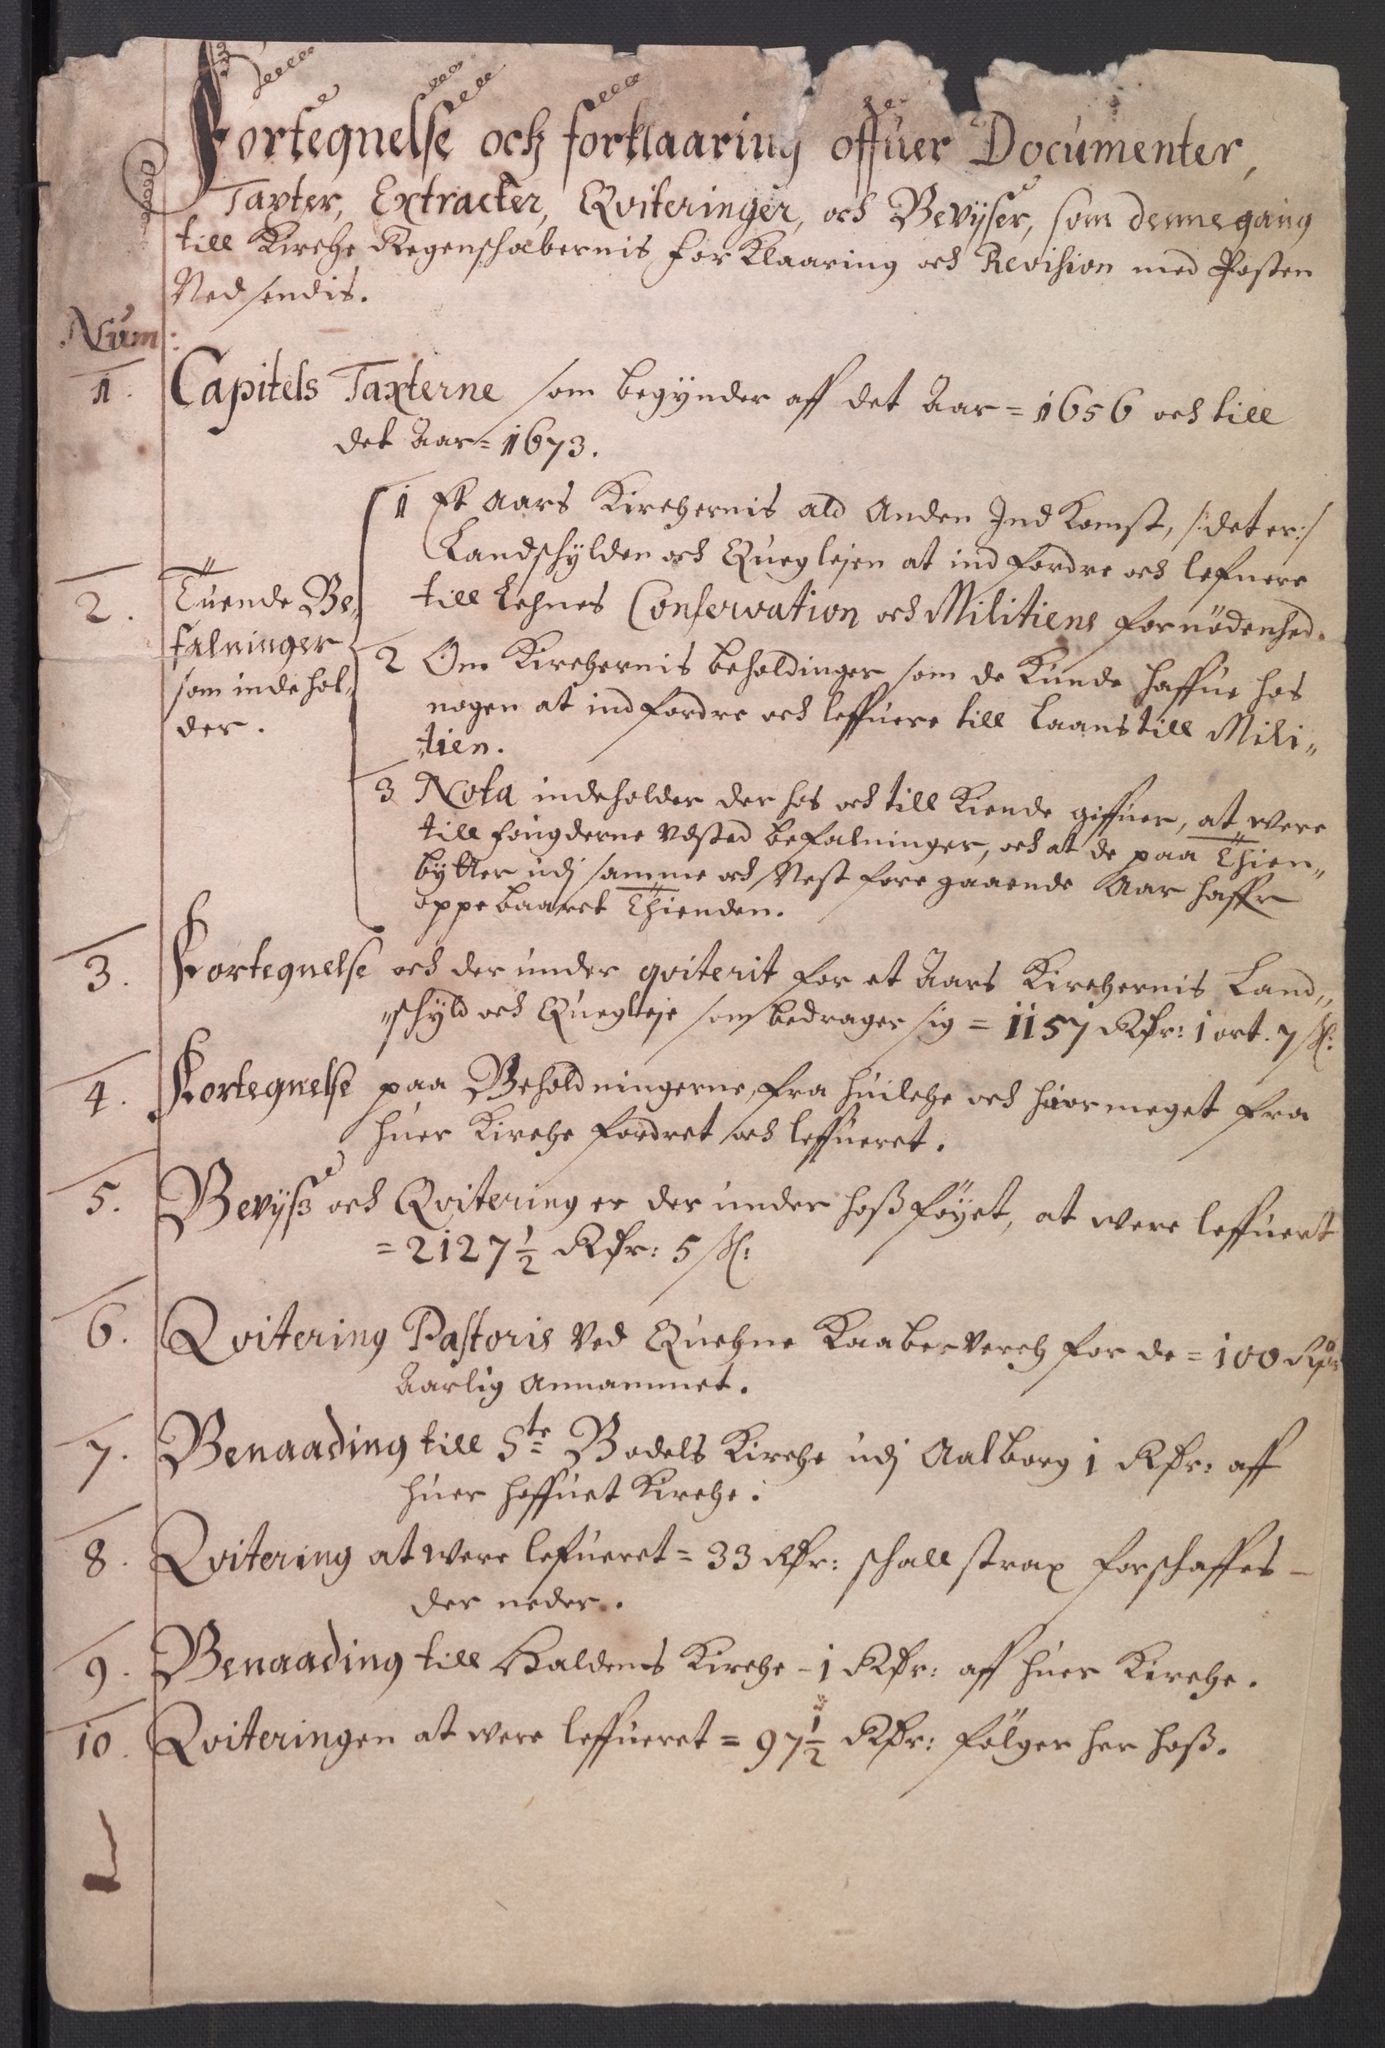 Fortegnelse och forklaaring offuer Documenter,
Taxter, Extracter, Qviteringer, och Bevijser, som denne gang
till Kirche Regenschabernis forklaaring och Revision med Posten
Nedsendis.
Num:
1. Capitels Taxterne som begynder aff det Aar = 1656 och till
det Aar = 1673.
2. Tuende Be-
falninger
som indehol-
der.
1 Et Aars Kirchernis ald Anden Ind Komst, /: det er :/
Landschylden och Queglejen at indfordre och lefuere
till Lehnes Conservation och Militiens fornødenhed.
2 Om Kirchernis beholdinger som de Kunde haffue hos
nogen at indfordre och leffuere till Laans till Mili,,
,,tien.
3 Nota indeholder der hos och till Kiende giffuer, at were
till fougderne Vdsted befalninger, och at de paa Thien,,
bytter udj samme och Nest foregaaende Aar haffr
oppebaaret Thienden.
3. Fortegnelse och der under qviterit for et Aars Kirchernis Land,,
,,schyld och Quegleje som bedrager sig = 1157 Rdr: 1 ort. 7 s:
4. Fortegnelse paa Beholdningerne, fra huilche och huormeget fra
huer Kirche fordret och leffueret.
5. Bevijs och Qvitering er der under hoß føyet, at were leffuert
= 2127 1/2 Rdr: 5 s:
6. Qvitering Pastoris Ved Quehne Kaaberverch for de = 100 Rdr
Aarlig Annammet.
7. Benaading till Ste Bodels Kirche udj Aalborg 1 Rdr: aff
huer hoffuet Kirche.
8. Qvitering at were lefueret = 33 Rdr: schall strax forschaffes
der neder.
9. Benaading till Haldens Kirche - 1 Rdr: aff huer Kirche.
10. Qviteringen at were leffueret = 97 1/2 Rdr: følger her hoß.